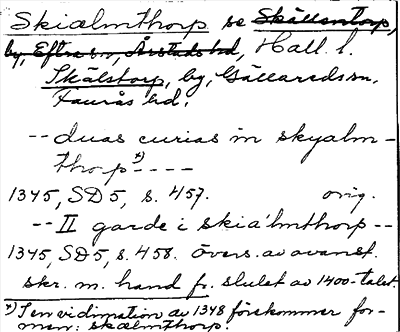 Skiælmthorp se Skällentorp,
by, Eftra sn, Årstads hd, Hall. l.
Skälstorp, by, Gällareds sn.
Faurås hd.
-- duas curias in skyalm-
thorp *) ----
1345, SD 5, s. 457. orig.
-- II garde i skiælmthorp --
1345, SD 5, s. 458. övers. av ovanst.
skr. m. hand fr. slutet av 1400-talet.
*) I en vidimation av 1348 förekommer for-
men: skælmthorp.